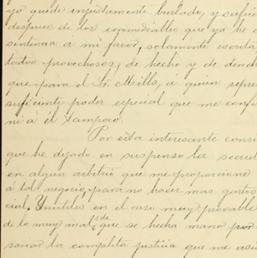 zó quede injustamente burlado, y sufrie
despues de los expendibles que ya he o
sentencia a mi favor, solamente escrita
todos provechosos, de hecho y de derech
que para el Sr. Mills, á quien repres
suficiente poder especial que me confi
ni á el Lampaso.
Por esta interesante consi
que he dejado en suspenso las secuel
en algun arbitrio que me proporcione
á tal negocio, para no hacer mas gastos
cial, é inutiles en el caso muy probable
de lo muy mal que se hecha mano para
sanar la completa justicia que me asis